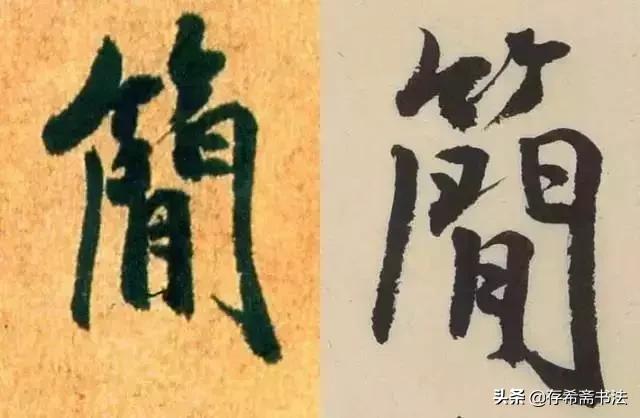 簡 簡
头条 @存希斋书法